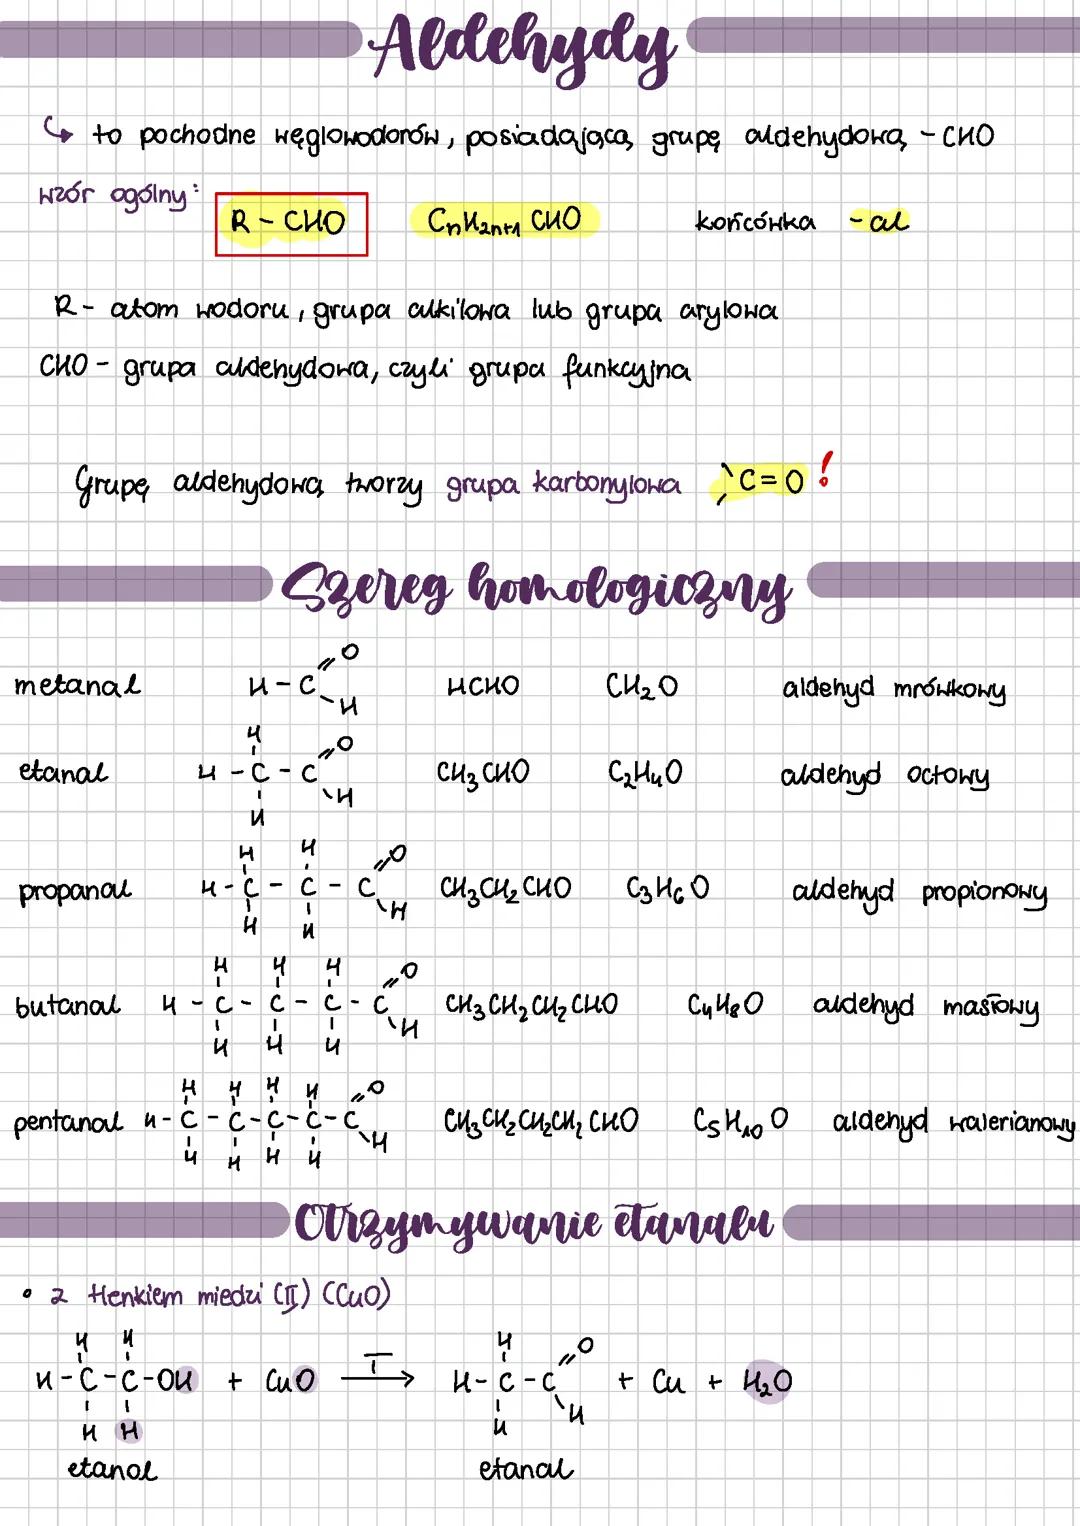 Aldehydy
↳ to pochodne węglowodorów, posiadającą grupę aldehydową -CHO
wzór ogólny: R - CHO CnH2n+1 CHO końcówka -al
R - atom wodoru, grupa alkilowa lub grupa arylowa
CHO - grupa aldehydowa, czyli grupa funkcyjna
Grupę aldehydową tworzy grupa karbonylowa C=O !
Szereg homologiczny
O
metanal H-C HCHO CH2O aldehyd mrówkowy
H
H O
etanal H-C-C CH3CHO C2H4O aldehyd octowy
H
H
H H O
propanal H-C-C-C CH3CH2CHO C3H6O aldehyd propionowy
H H H
H H H O
butanal H-C-C-C-C CH3CH2CH2CHO C4H8O aldehyd masłowy
H H H H
H H H H O
pentanal H-C-C-C-C-C CH3CH2CH2CH2CHO C5H10O aldehyd walerianowy
H H H H H
Otrzymywanie etanalu
• z tlenkiem miedzi (II) (CuO)
H H H O
H-C-C-OH + CuO T→ H-C-C + Cu + H2O
H H H H
etanol etanal